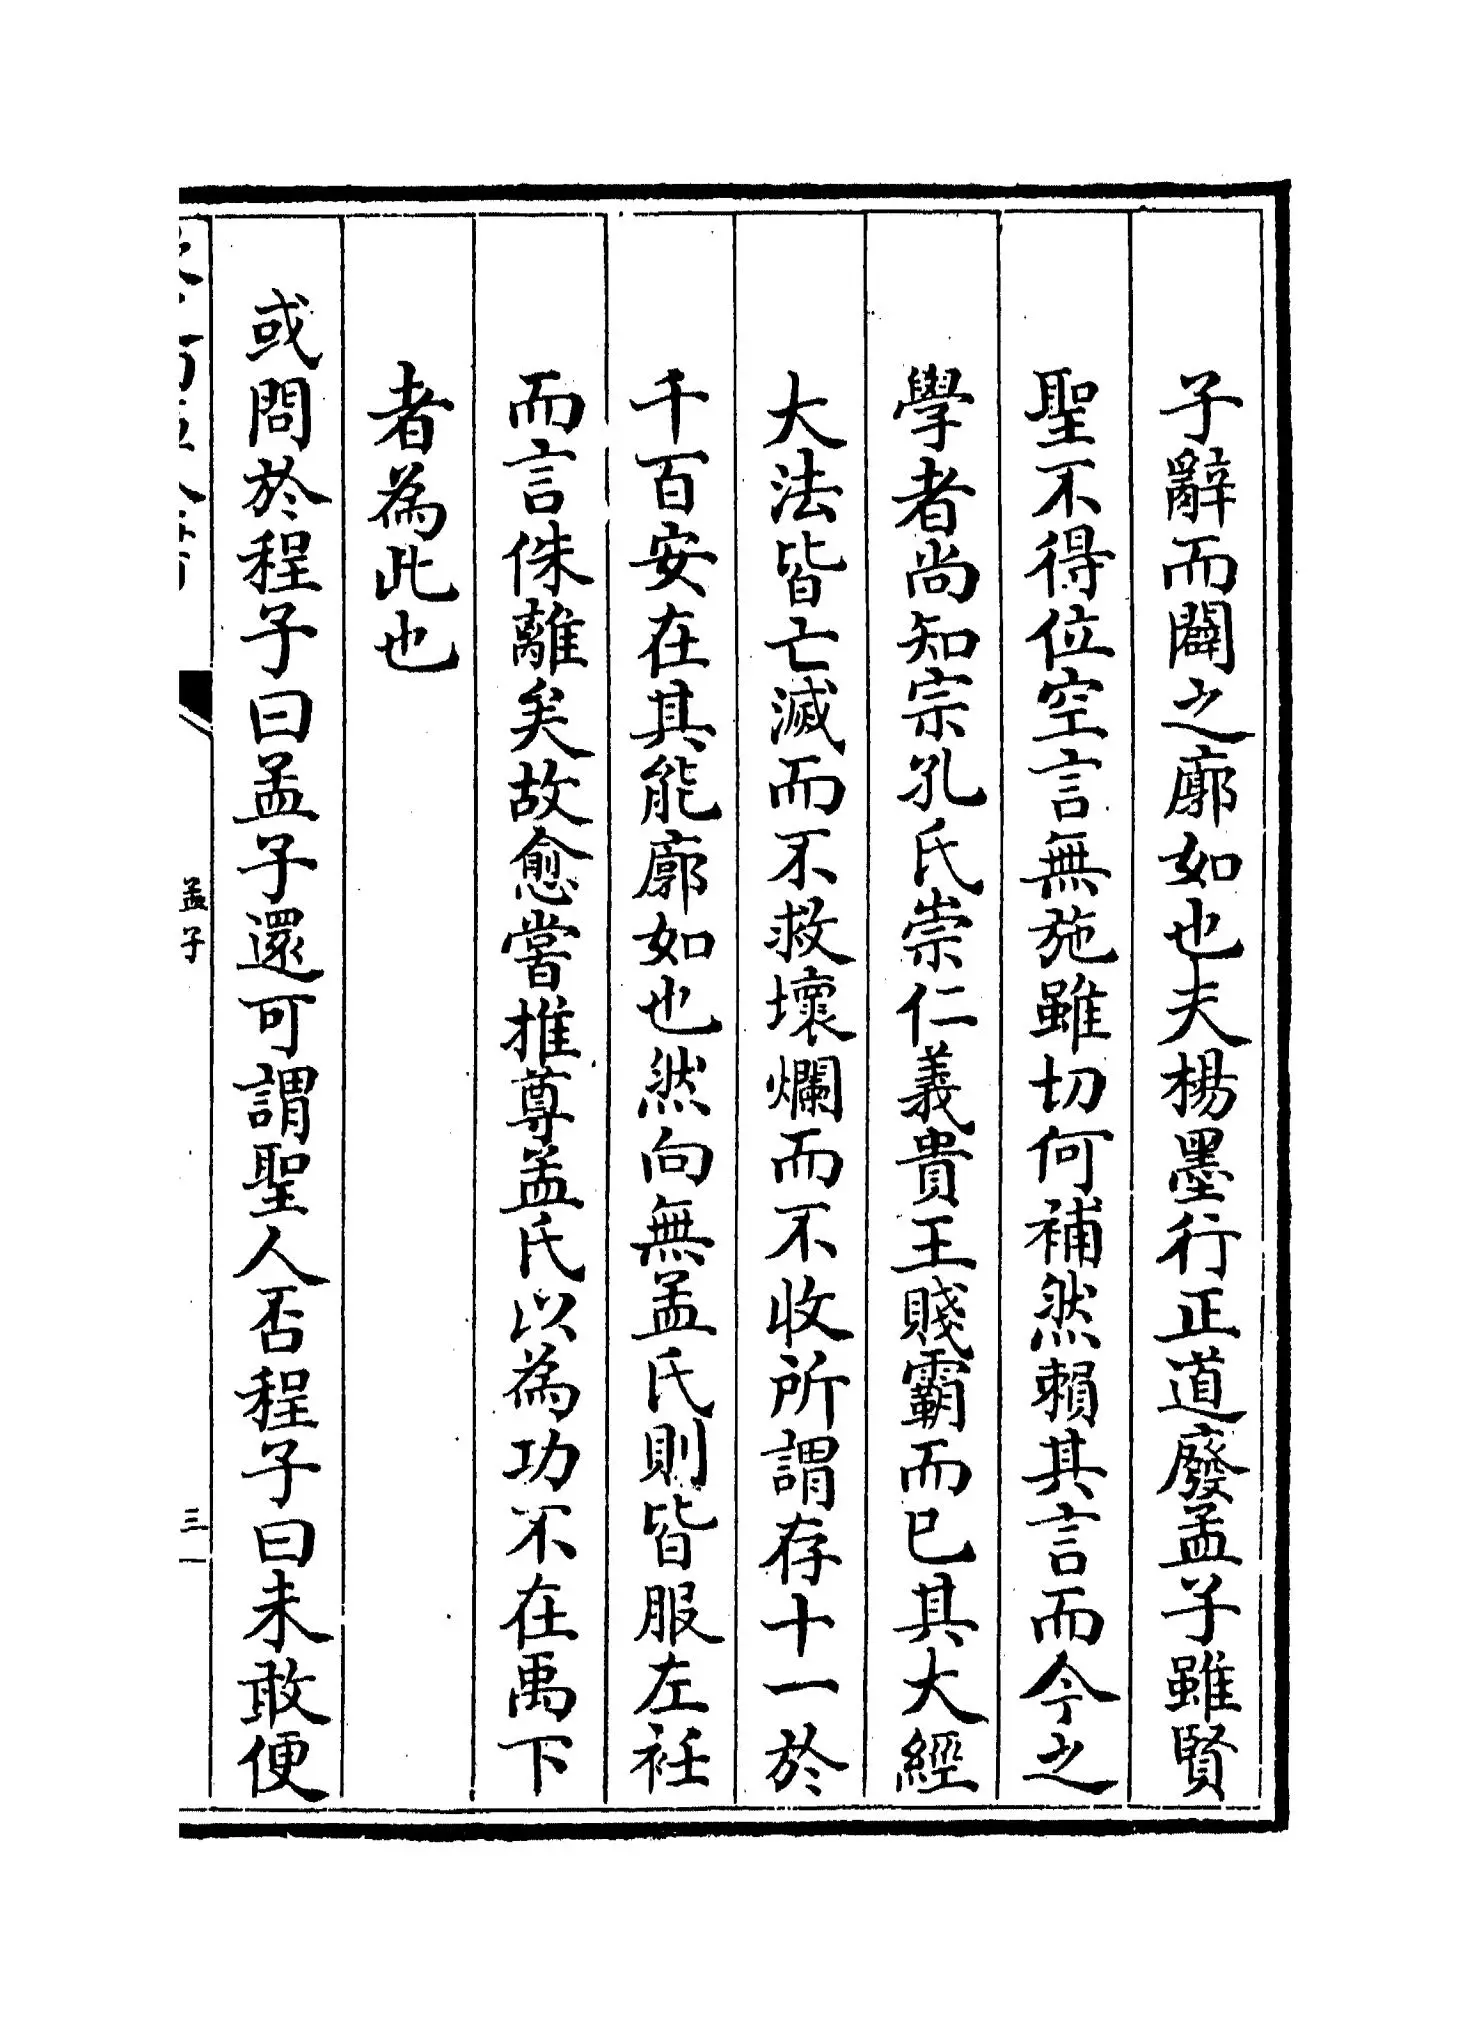 子辭而闢之廓如也夫楊墨行正道廢孟子雖賢
聖不得位空言無施雖切何補然賴其言而今之
學者尚知宗孔氏崇仁義貴王賤霸而已其大經
大法皆亡滅而不救壞爛而不收所謂存十一於
千百安在其能廓如也然向無孟氏則皆服左衽
而言侏離矣故愈嘗推尊孟氏以為功不在禹下
者為此也
或問於程子曰孟子還可謂聖人否程子曰未敢便
孟子
三